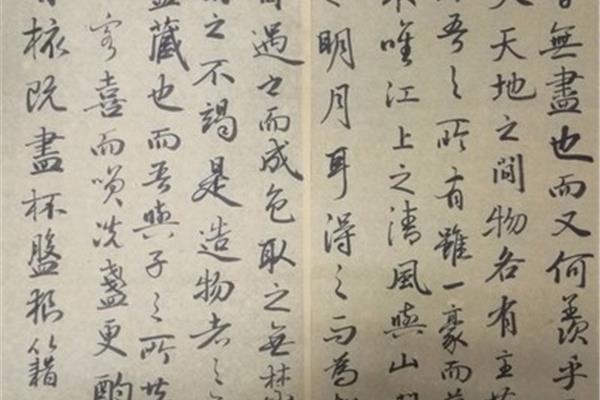 無盡也而又何羨乎
天地之間物各有主
吾之所有雖一豪而
唯江上之清風與山間
明月耳得之而為
遇之而成色取之無禁
之不竭是造物者之
藏也而吾與子之所共
客喜而笑洗盞更酌
核既盡杯盤狼籍